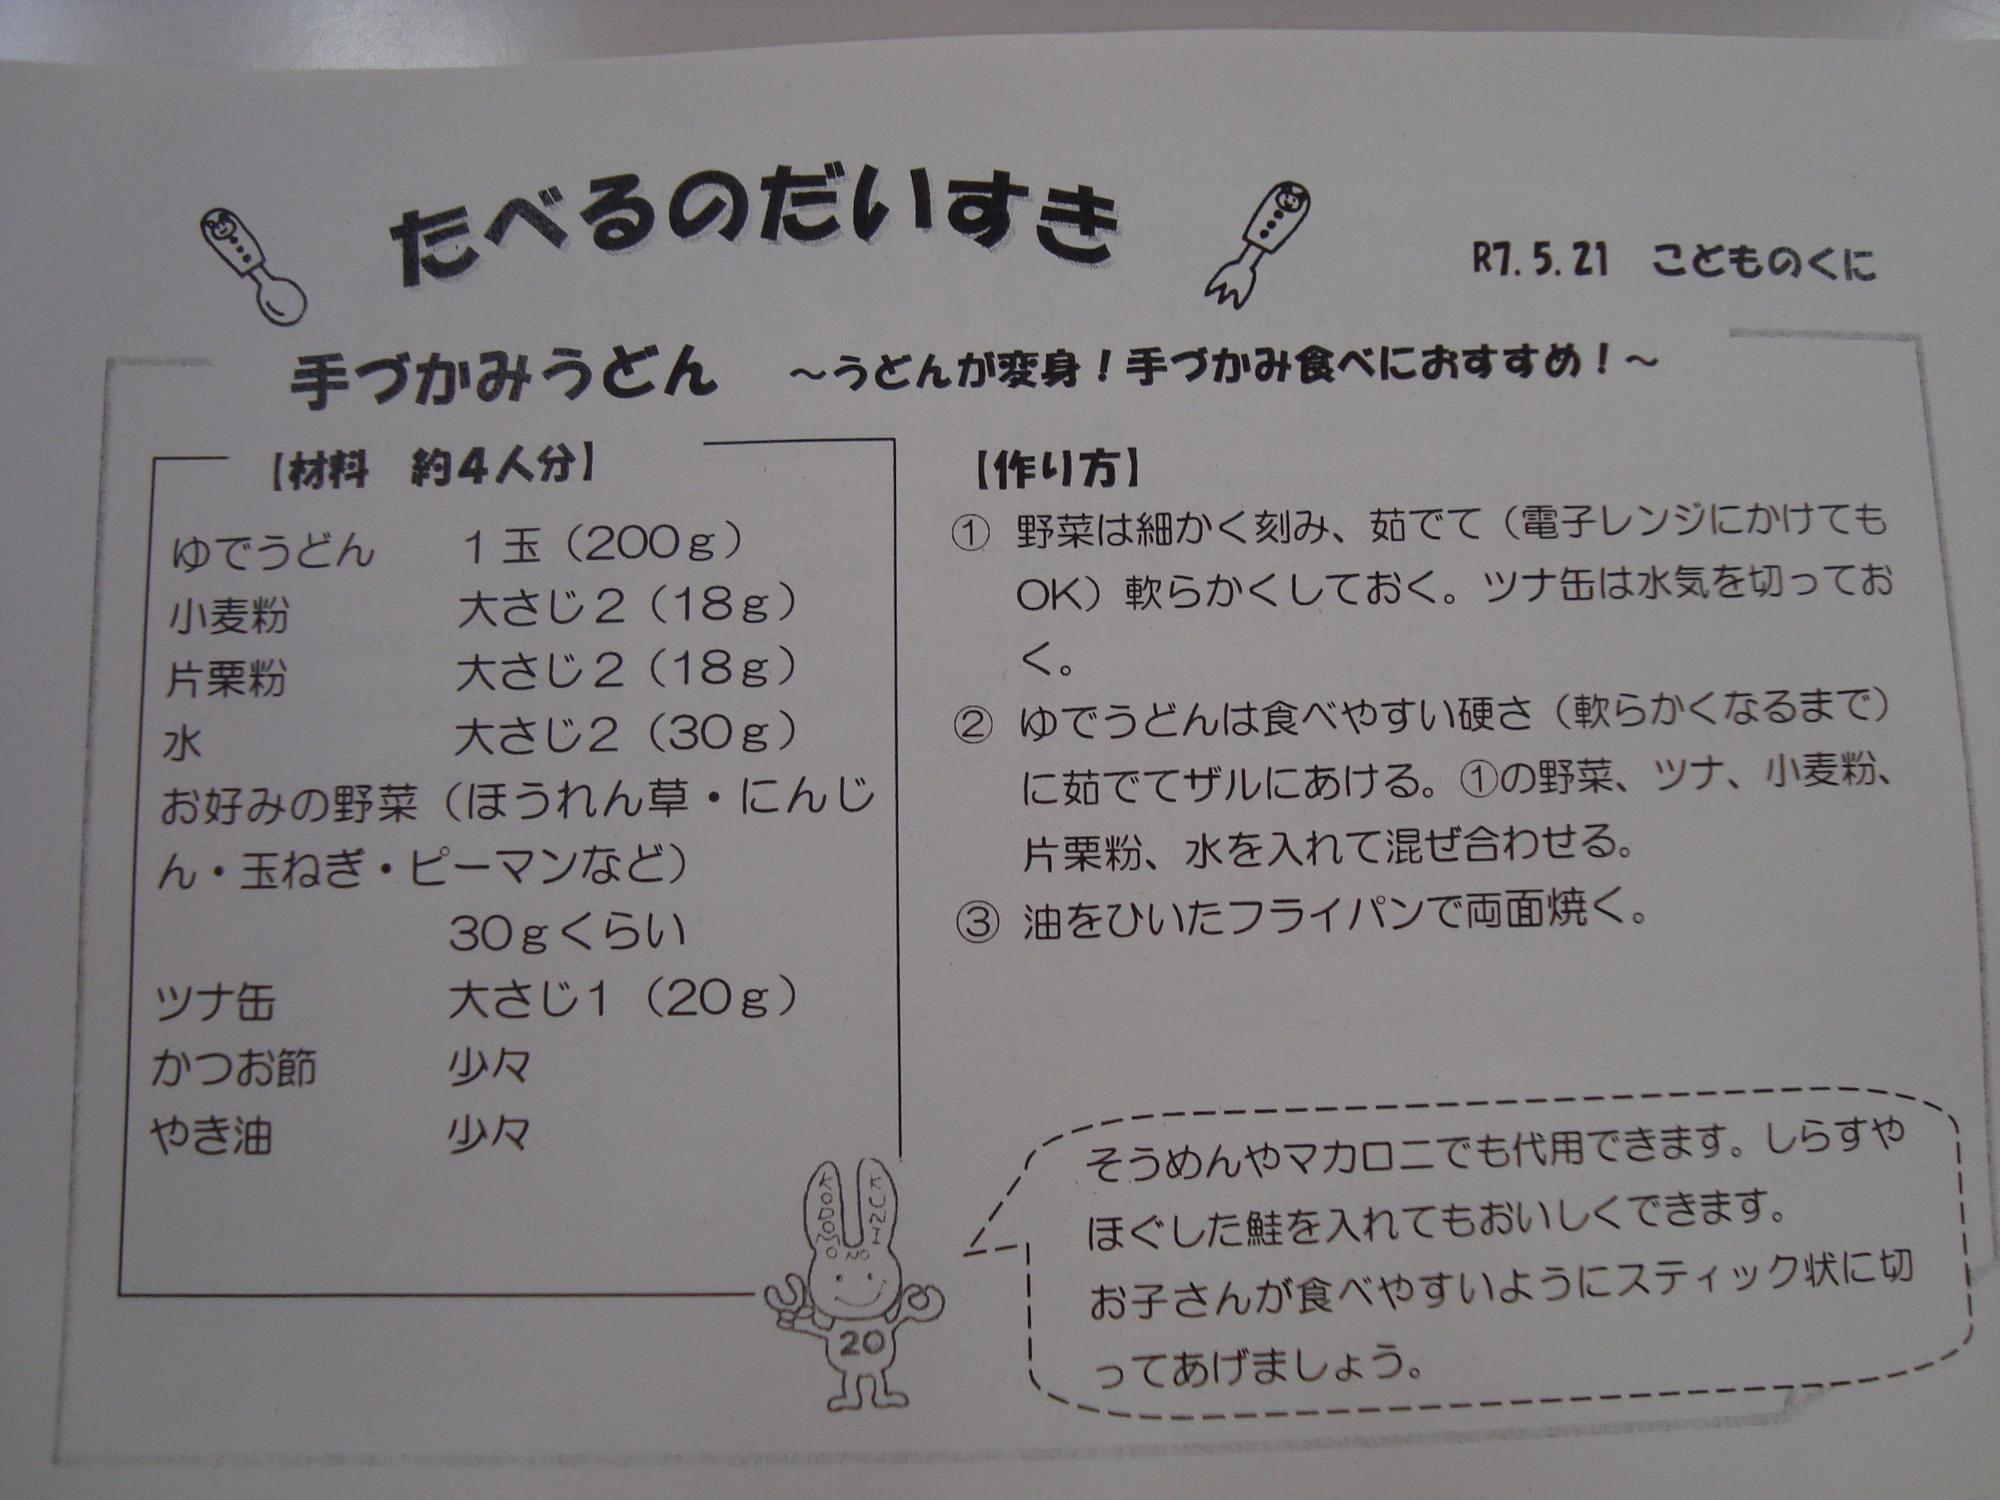 たべるのだいすき
R7.5.21　こどものくに
手づかみうどん　～うどんが変身！手づかみ食べにおすすめ！～
【材料　約４人分】
ゆでうどん　１玉（200ｇ）
小麦粉　大さじ２（18ｇ）
片栗粉　大さじ２（18ｇ）
水　大さじ２（30ｇ）
お好みの野菜（ほうれん草・にんじ
ん・玉ねぎ・ピーマンなど）
30ｇくらい
ツナ缶　大さじ１（20ｇ）
かつお節　少々
やき油　少々
【作り方】
① 野菜は細かく刻み、茹でて（電子レンジにかけても
OK）軟らかくしておく。ツナ缶は水気を切ってお
く。
② ゆでうどんは食べやすい硬さ（軟らかくなるまで）
に茹でてザルにあける。①の野菜、ツナ、小麦粉、
片栗粉、水を入れて混ぜ合わせる。
③ 油をひいたフライパンで両面焼く。
そうめんやマカロニでも代用できます。しらすや
ほぐした鮭を入れてもおいしくできます。
お子さんが食べやすいようにスティック状に切
ってあげましょう。
KODOMO
NO
KUNI
20